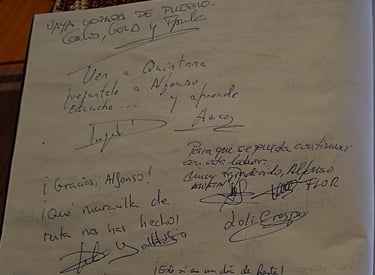 VAYA MORADA DE PUEBLO.
Ven a Quintana
preguntale a Alfonso
escucha... y aprende
Para que se pueda continuar
con esta labor.
muy agradecido, Alfonso
AGUSTIN FLOR
¡Gracias, Alfonso!
¡Qué maravilla de
ruta nos has hecho!
Loli Crespo
¡Esto sí es un día de fiesta!